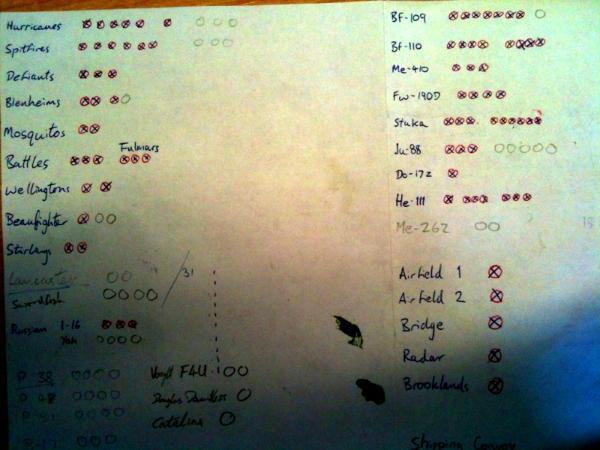 Hurricanes
Spitfires
Defiants
Blenheims
Mosquitos
Battles Fulmars
Wellingtons
Beaufighter
Stirlings
Lancaster
Swordfish
/31
Russian I-16
Yak
P 38
P 48
P 51
B-17
Vought F4U
Douglas Dauntless
Catalina
Bf-109
Bf-110
Me-410
Fw-190D
Stuka
Ju-88
Do-17z
He-111
Me-262
18
Airfield 1
Airfield 2
Bridge
Radar
Brooklands
Shipping Convoy